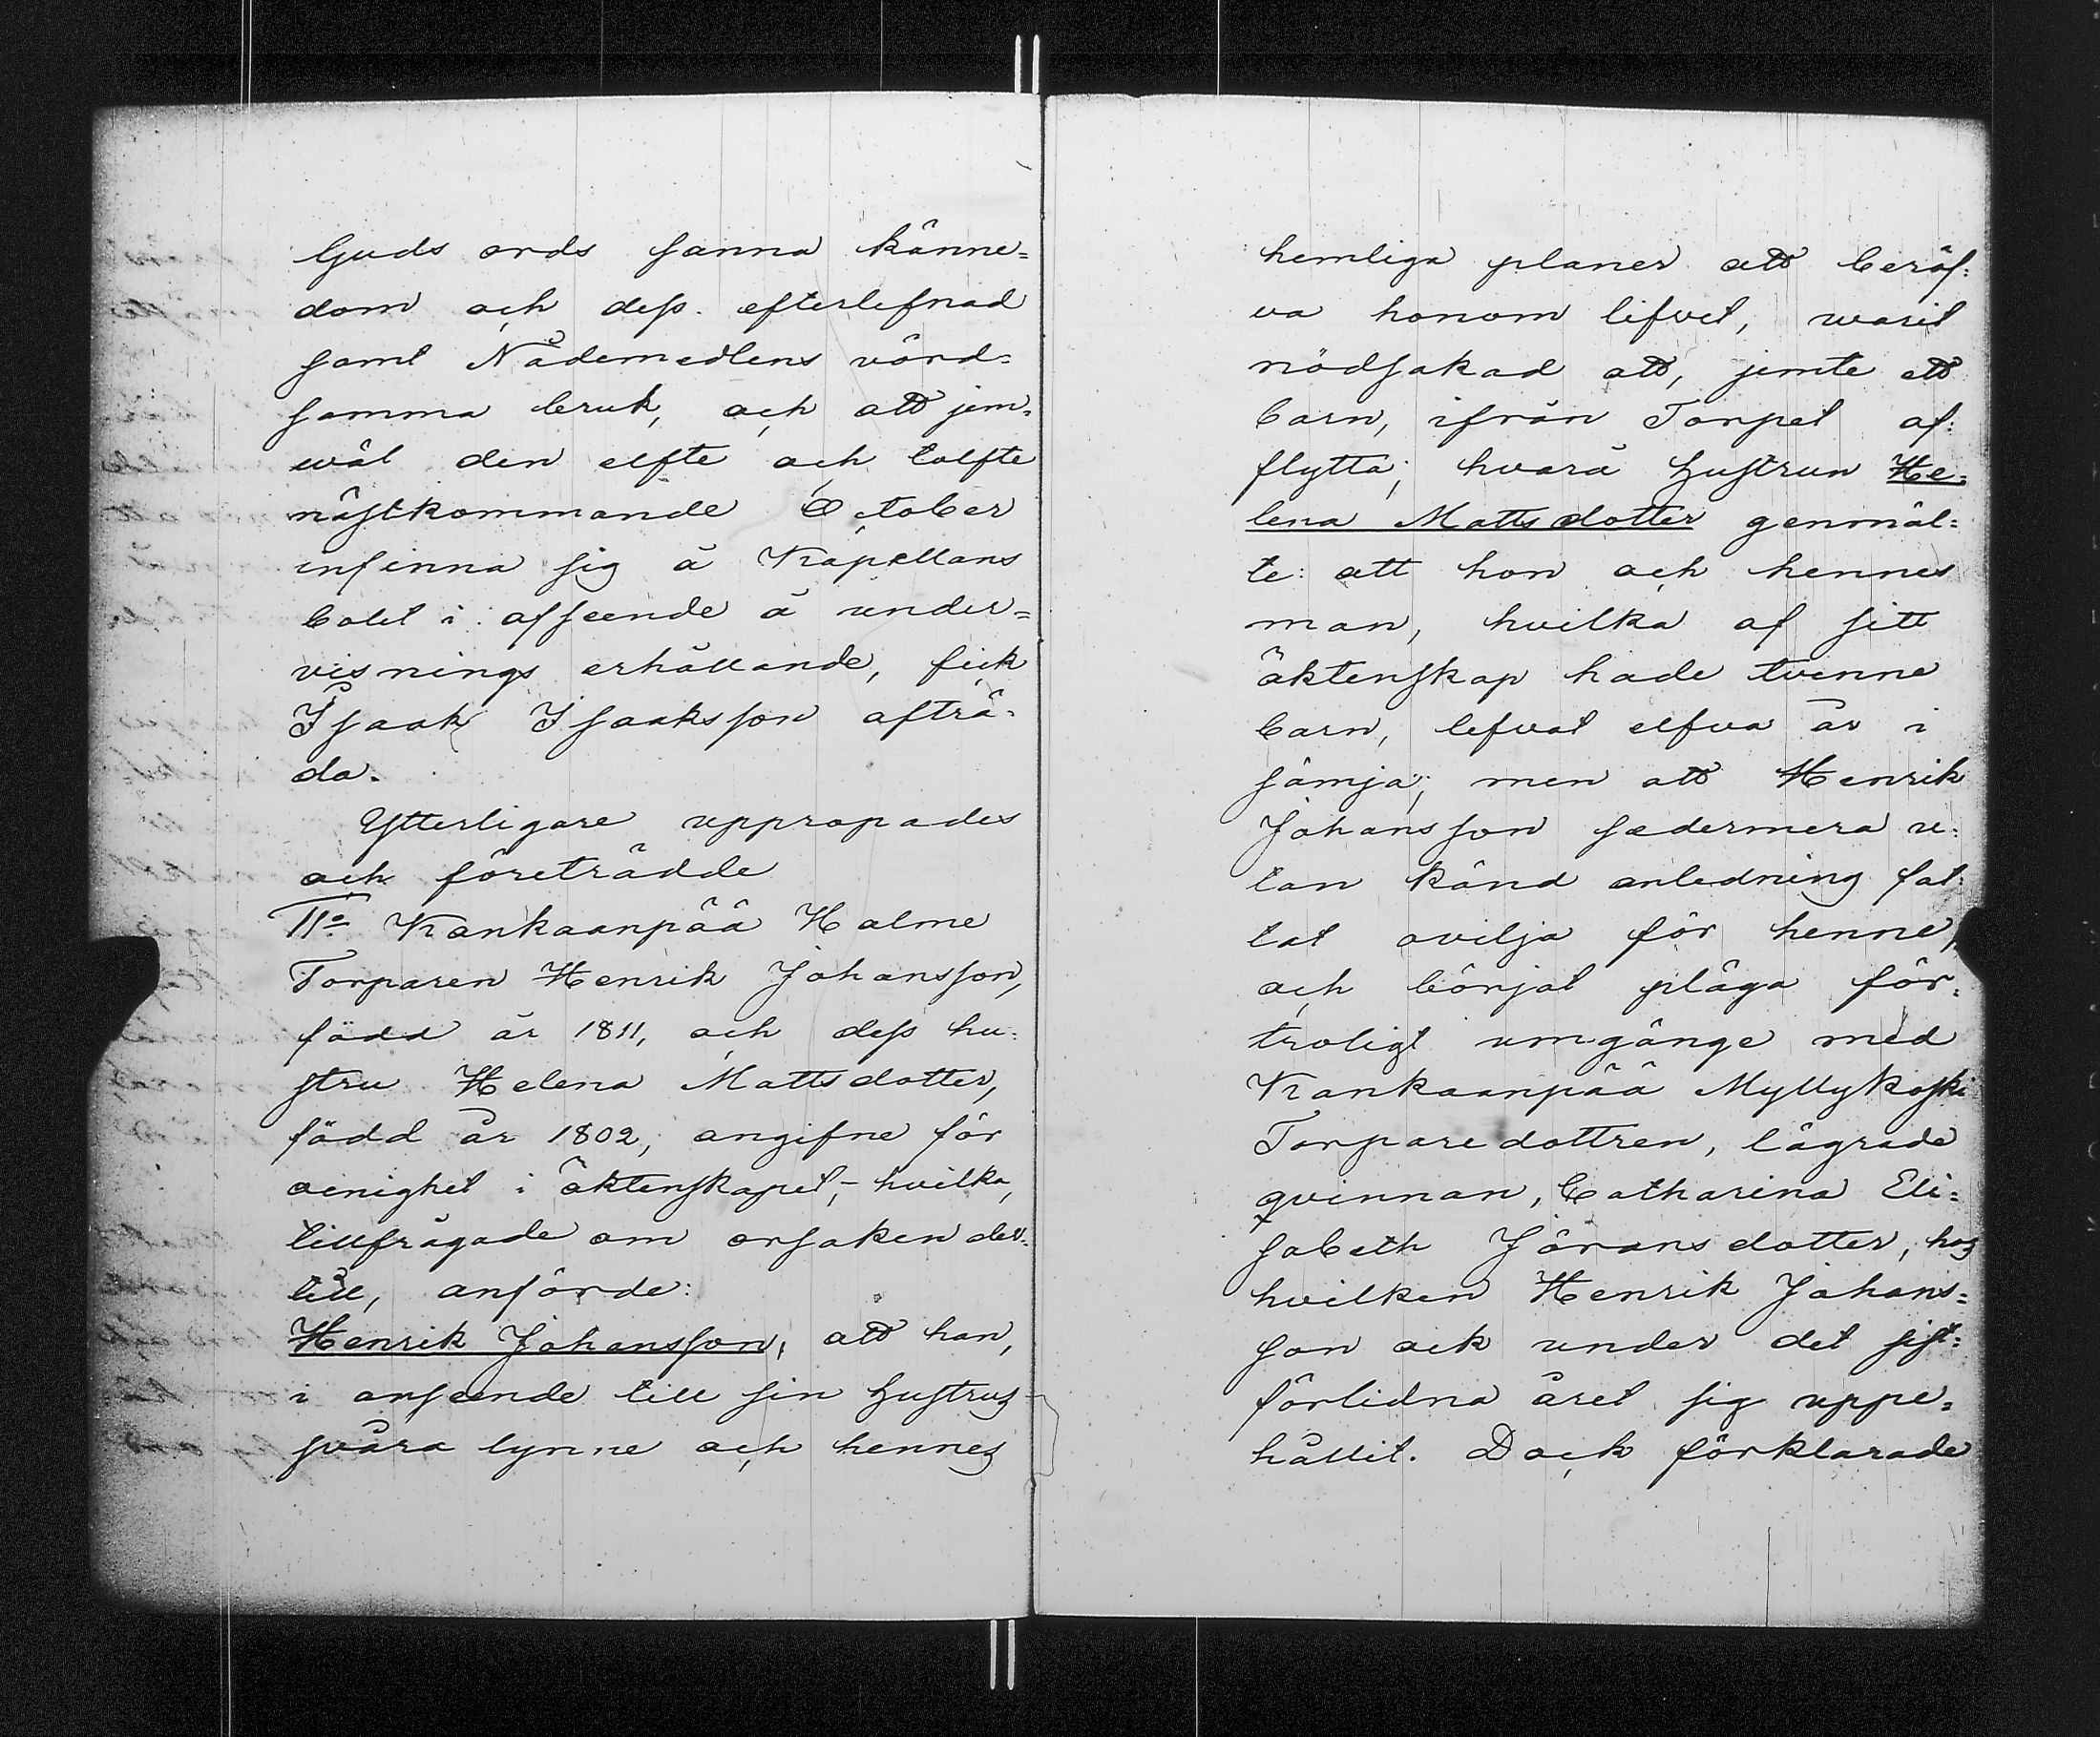 Guds ords sanna känne=
dom och dess efterlefnad
samt Nådemedlens vörd=
samma bruk, och att jem=
wäl den elfte och tolfte
nästkommande October
infinna sig å Kapellans
bolet i afseende å under=
visnings erhållande, fick
Isaak Isaaksson afträ=
da.
Ytterligare uppropades
och företrädde
11o Kankaanpää Halme
Torparen Henrik Johansson,
född år 1811, och dess hu=
stru Helena Mattsdotter,
född år 1802, angifne för
oenighet i äktenskapet,- hvilka,
tillfrågade om orsaken der=
till, anförde:
Henrik Johansson, att han,
i anseende till sin hustrus
svåra lynne och hennes
hemliga planer att beröf=
va honom lifvet, warit
nödsakad att, jemte ett
barn, ifrån Torpet af=
flytta; hvarå hustrun He=
lena Mattsdotter genmäl=
te: att hon och hennes
man, hvilka af sitt
äktenskap hade tvenne
barn, lefvat elfva år i
sämja; men att Henrik
Johansson sedermera u=
tan känd anledning fat=
tat ovilja för henne,
och börjat pläga för=
troligt umgänge med
Kankaanpää Myllykoski
Torparedottren, lägrade
qvinnan, Catharina Eli=
sabeth Jöransdotter, hos
hvilken Henrik Johans=
son ock under det sist=
förlidna året sig uppe=
hållit. Dock förklarade